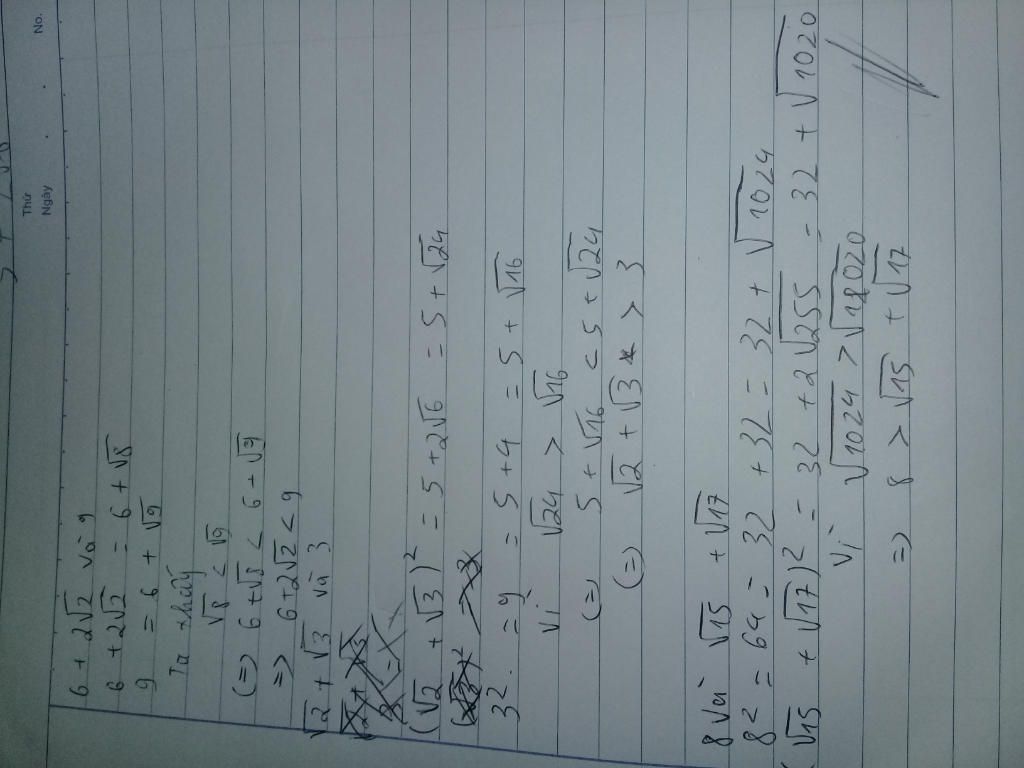 No.
Thứ
Ngày
6 + 2√2 và 9
6 + 2√2 = 6 + √8
9 = 6 + √9
Ta thấy
√8 < √9
(=) 6+√8 < 6 + √9
=) 6+2√2 < 9
√2 + √3 và 3
(√2 + √3)² = 5 + 2√6 = 5 + √24
3². = 9 = 5+4 = 5 + √16
Vì √24 > √16
(=) 5 + √16 < 5 + √24
(=) √2 + √3 > 3
8 và √15 + √17
8² = 64 = 32 + 32 = 32 + √1024
(√15 + √17)² = 32 + 2√255 = 32 + √1020
Vì √1024 > √1020
=) 8 > √15 + √17